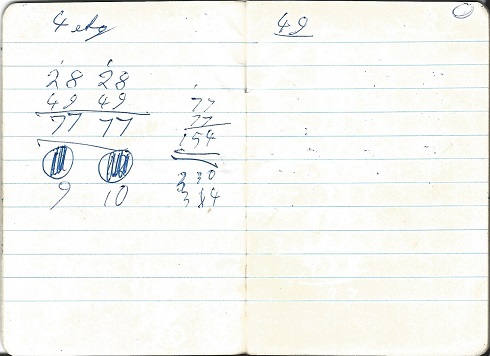 28 28
49 49
77 77
9 10
77
77
154
230
384
49